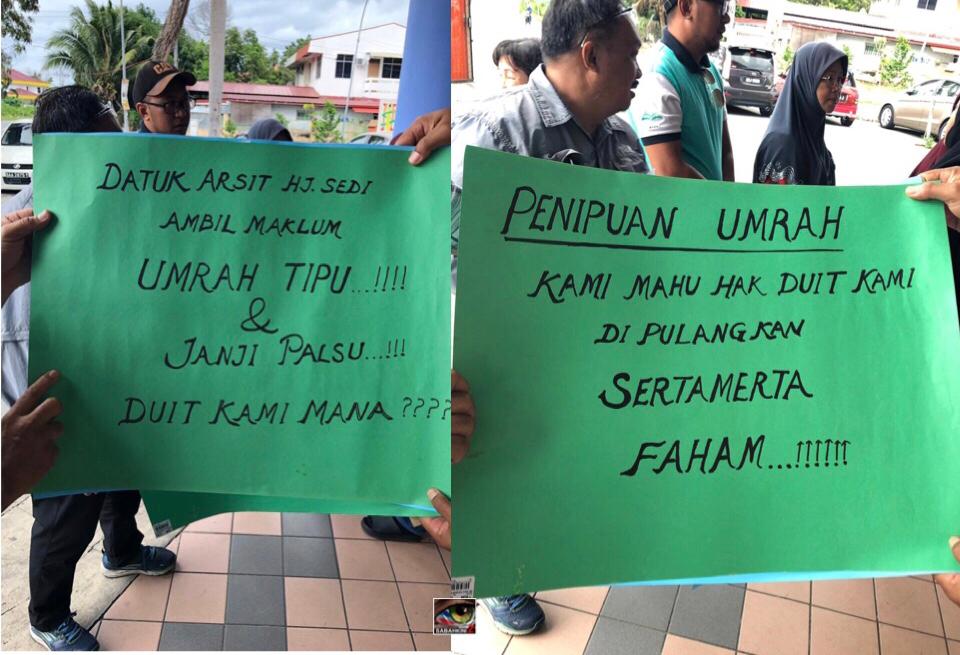 DATUK ARSIT HJ. SEDI
AMBIL MAKLUM
UMRAH TIPU...!!!!
&
JANJI PALSU...!!!
DUIT KAMI MANA ????
PENIPUAN UMRAH
KAMI MAHU HAK DUIT KAMI
DI PULANGKAN
SERTAMERTA
FAHAM...!!!!!!
SABAHKINI